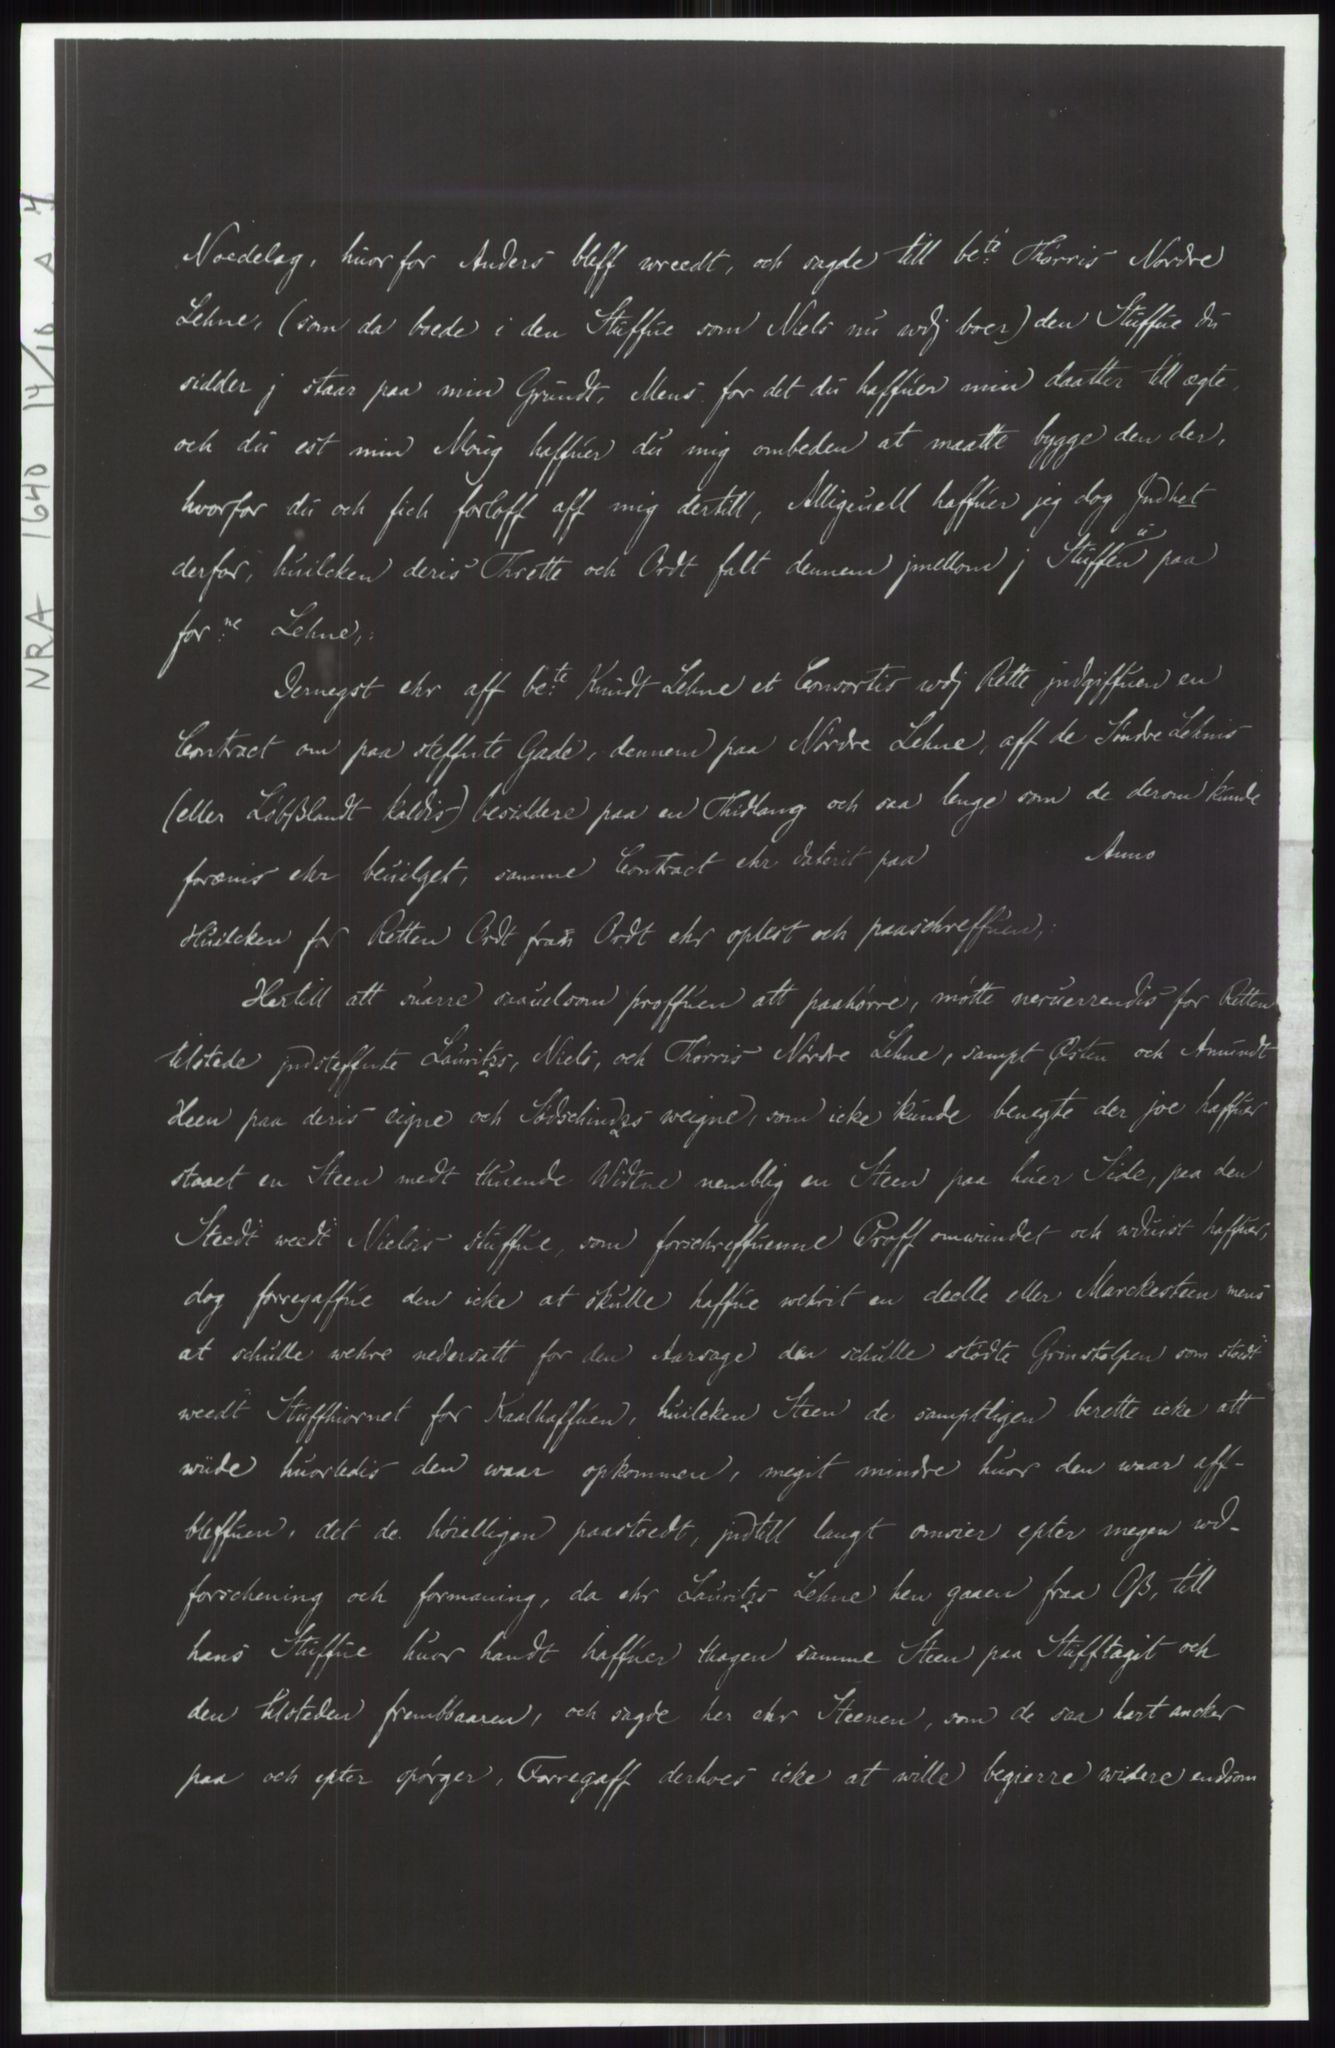 NRA 1640 14/10 A 4
Noedelag, huor for Anders bleff wreedt, och sagde till be:te Thörris Nordre
Lehne, (som da boede i den Stuffue som Niels nu wdj boer) den Stuffue du
sidder j staar paa min Grundt, Mens for det du haffuer min daatter till ægte,
och du est min Moug haffuer du mig ombeden at maatte bygge den der,
hvorfor du och fich forloff aff mig dertill, Alligeuell haffuer jeg dog Jndhet
derfor, huilcken deris Thrette och Ordt falt dennem jmellom j Stuffen paa
for:ne Lehne,:
Dernegst ehr aff be:te Knudt Lehne et Consortis wdj Rette jndgiffuen en
Contract om paa steffnte Gade, dennem paa Nordre Lehne, aff de Söndre Lehnis
(eller Löbsslandt kaldis) besiddere paa en Thidlang och saa lenge som de derom kunde
forænis ehr beuilget, samme Contract ehr daterit paa Anno
Huilcken for Retten Ordt fran Ordt ehr oplest och paaschreffuen,:
Hertill att suarre saauelsom proffuen att paahörre, mötte neruerrendis for Retten
tilstede jndsteffnte Lauritzs, Niels, och Thörris Nordre Lehne, sampt Østen och Amundt
Heen paa deris eigne och Södschindzs weigne, som icke kunde benegte der joe haffuer
staaet en Steen medt thuende Widtne nemblig en Steen paa huer Side, paa den
Stedt weedt Nielsis stuffue, som forschreffuenne Proff omwundet och wduist haffuer,
dog forregaffue den icke at skulle haffue wehrit en deelle eller Marckesteen mens
at schulle wehre nedersatt for den Aarsage den schulle stödte Grinstolpen som stoedt
weedt Stuffhiornet for Kaalhaffuen, huilcken Steen de samptligen berette icke att
wiide huorledis den waar opkommen, megit mindre huor den waar aff-
bleffuen, det de höiелligen paastoedt, jndtill langt omsier epter megen wd-
forschening och formaning, da ehr Lauritzs Lehne hen gaaen fraa Oss, till
hans Stuffue huor handt haffuer thagen samme Steen paa Stufftagit och
den tilsteden frembbaaren, och sagde her ehr Steenen, som de saa hart ancker
paa och epter spörger, Forregaff derhoes icke at wille begierre widere endsom